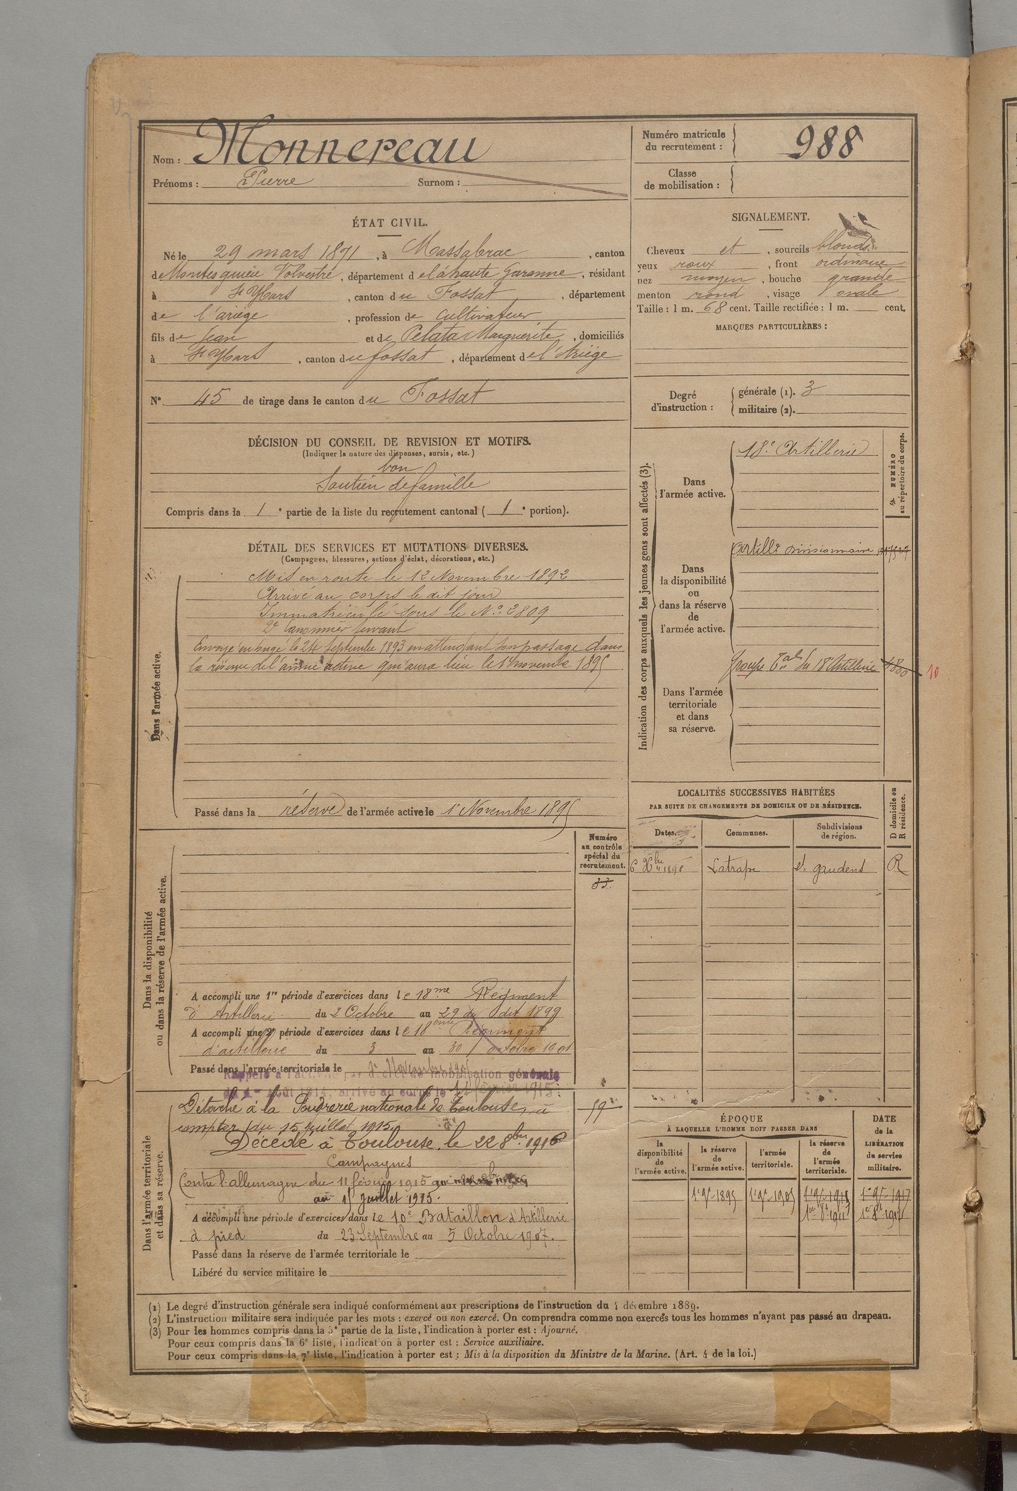 Nom : Monnereau
Prénoms : Pierre Surnom :
Numéro matricule du recrutement : 988
Classe de mobilisation :
ÉTAT CIVIL.
Né le 29 mars 1871, à Massabrac, canton
de Montesquieu Volvestre, département de la haute Garonne, résidant
à St Ybars, canton du Fossat, département
de l'ariège, profession de cultivateur
fils de Jean et de Pelata Marguerite, domiciliés
à St Ybars, canton du fossat, département de l'Ariège
N° 45 de tirage dans le canton du Fossat
SIGNALEMENT.
Cheveux et, sourcils blonds
yeux roux, front ordinaire
nez moyen, bouche grande
menton rond, visage ovale
Taille : 1 m. 68 cent. Taille rectifiée : 1 m. cent.
MARQUES PARTICULIÈRES :
Degré d'instruction : générale (1). 3
militaire (2).
DÉCISION DU CONSEIL DE REVISION ET MOTIFS.
(Indiquer la nature des dispenses, sursis, etc.)
bon
Soutien de famille
Compris dans la 1e partie de la liste du recrutement cantonal (1e portion).
DÉTAIL DES SERVICES ET MUTATIONS DIVERSES.
(Campagnes, blessures, actions d'éclat, décorations, etc.)
Dans l'armée active.
Mis en route le 12 Novembre 1892
Arrivé au corps le dit jour
Immatriculé sous le N° 2809
2e Canonnier servant
Envoyé en congé le 24 Septembre 1893 en attendant son passage dans
la réserve de l'armée active qui aura lieu le 1er novembre 1895
Passé dans la réserve de l'armée active le 1er Novembre 1895
Indication des corps auxquels les jeunes gens sont affectés (3).
NUMÉRO au répertoire du corps.
Dans l'armée active.
18e Artillerie
Dans la disponibilité ou dans la réserve de l'armée active.
artillie divisionnaire
Dans l'armée territoriale et dans sa réserve.
Groupe Tal du 18e Artillerie 1800 10
LOCALITÉS SUCCESSIVES HABITÉES
PAR SUITE DE CHANGEMENTS DE DOMICILE OU DE RÉSIDENCE.
Dates. Communes. Subdivisions de région. D domicile ou R résidence.
6 Xbre 1896 Latrape St gaudens R
Numéro au contrôle spécial du recrutement.
33
Dans la disponibilité ou dans la réserve de l'armée active.
A accompli une 1re période d'exercices dans le 18me Régiment
d'Artillerie du 2 Octobre au 29 du dit 1899
A accompli une 2e période d'exercices dans le 18ème Régiment
d'artillerie du 3 au 30 octobre 1901
Passé dans l'armée territoriale le 1er Novembre 1905
Rappelé à l'activité par décret de mobilisation générale
du 1er Août 1914, arrivé au corps le 11 février 1915.
Dans l'armée territoriale et dans sa réserve.
Détaché à la Poudrerie nationale de Toulouse, à
compter du 15 juillet 1915
Décédé à Toulouse, le 22 8bre 1916
Campagnes
Contre l'allemagne du 11 février 1915
au 15 juillet 1915.
A accompli une période d'exercices dans le 10e Bataillon d'Artillerie
à pied du 23 Septembre au 5 Octobre 1907.
Passé dans la réserve de l'armée territoriale le
Libéré du service militaire le
59
ÉPOQUE
À LAQUELLE L'HOMME DOIT PASSER DANS
la disponibilité de l'armée active. la réserve de l'armée active. l'armée territoriale. la réserve de l'armée territoriale.
DATE de la LIBÉRATION du service militaire.
1er 9bre 1895 1er 9bre 1905 1er 9bre 1911 1er 9bre 1917
(1) Le degré d'instruction générale sera indiqué conformément aux prescriptions de l'instruction du 4 décembre 1889.
(2) L'instruction militaire sera indiquée par les mots : exercé ou non exercé. On comprendra comme non exercés tous les hommes n'ayant pas passé au drapeau.
(3) Pour les hommes compris dans la 5e partie de la liste, l'indication à porter est : Ajourné.
Pour ceux compris dans la 6e liste, l'indication à porter est : Service auxiliaire.
Pour ceux compris dans la 7e liste, l'indication à porter est : Mis à la disposition du Ministre de la Marine. (Art. 4 de la loi.)